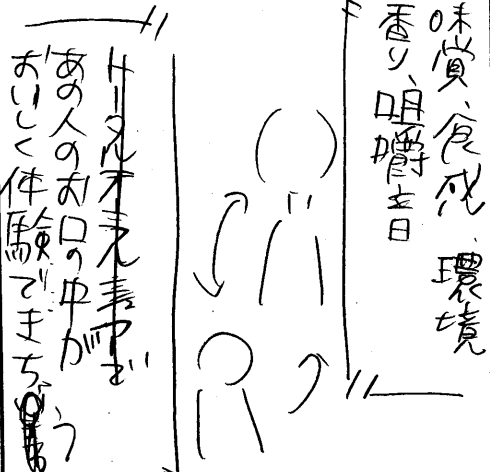 味覚、食感、環境
香り、咀嚼音
トータル
あの人のお口の中が
おいしく体験できちゃう